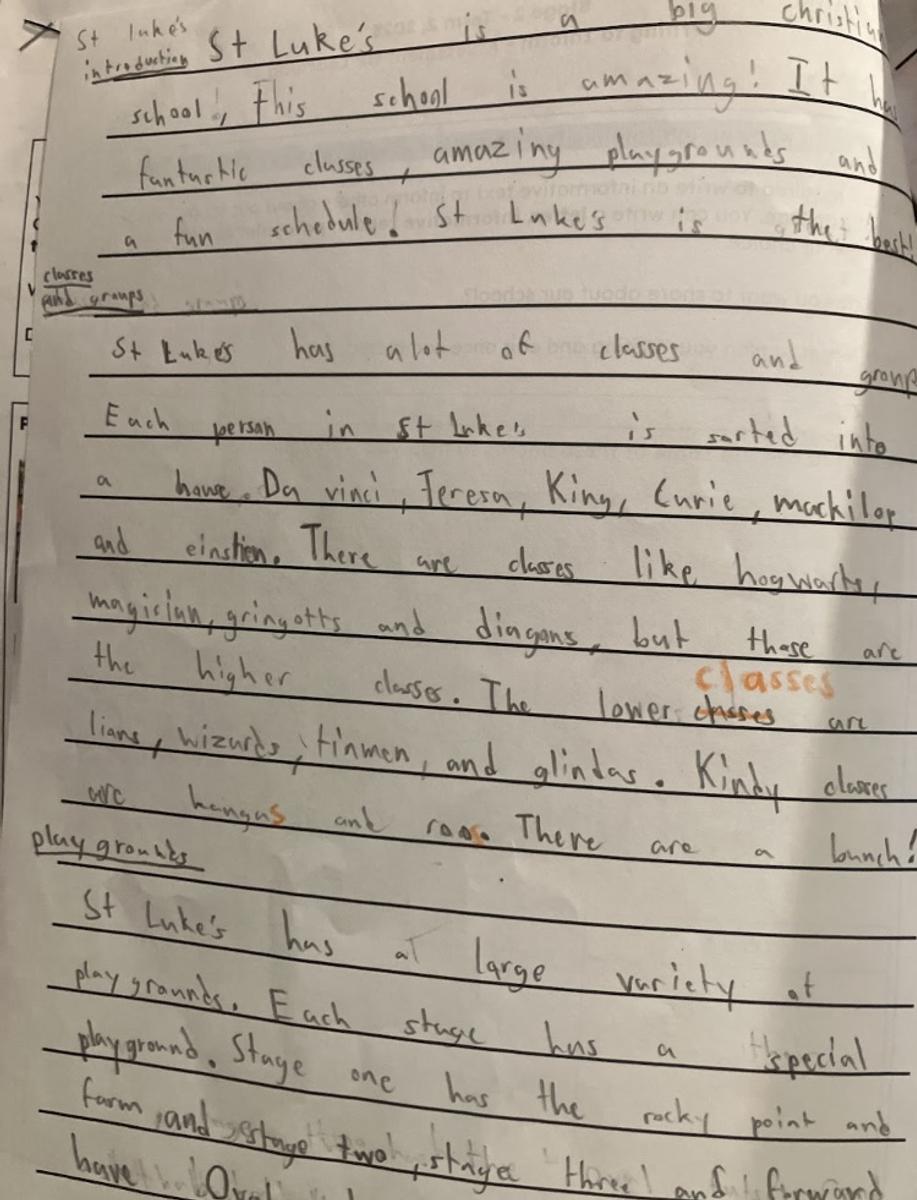 St luke's
introduction
St Luke's is a big christi
school!, This school is amazing! It ha
fantastic classes, amazing playgrounds and
a fun schedule! St Luke's is the best!
classes
and groups
St Luke's has alot of classes and group
Each person in St Luke's is sorted into
a house. Da vinci, Teresa, King, Curie, mackilop
and einstien. There are classes like hogwarts,
magician, gringotts and diagons, but these are
the higher classes. The lower classes are
lions, wizards, tinmen, and glindas. Kindy classes
are kangas and roos. There are a bunch!
play grounds
St Luke's has a large variety of
play grounds. Each stage has a special
playground. Stage one has the rocky point and
farm and stage two, stage three and forward
have Oval